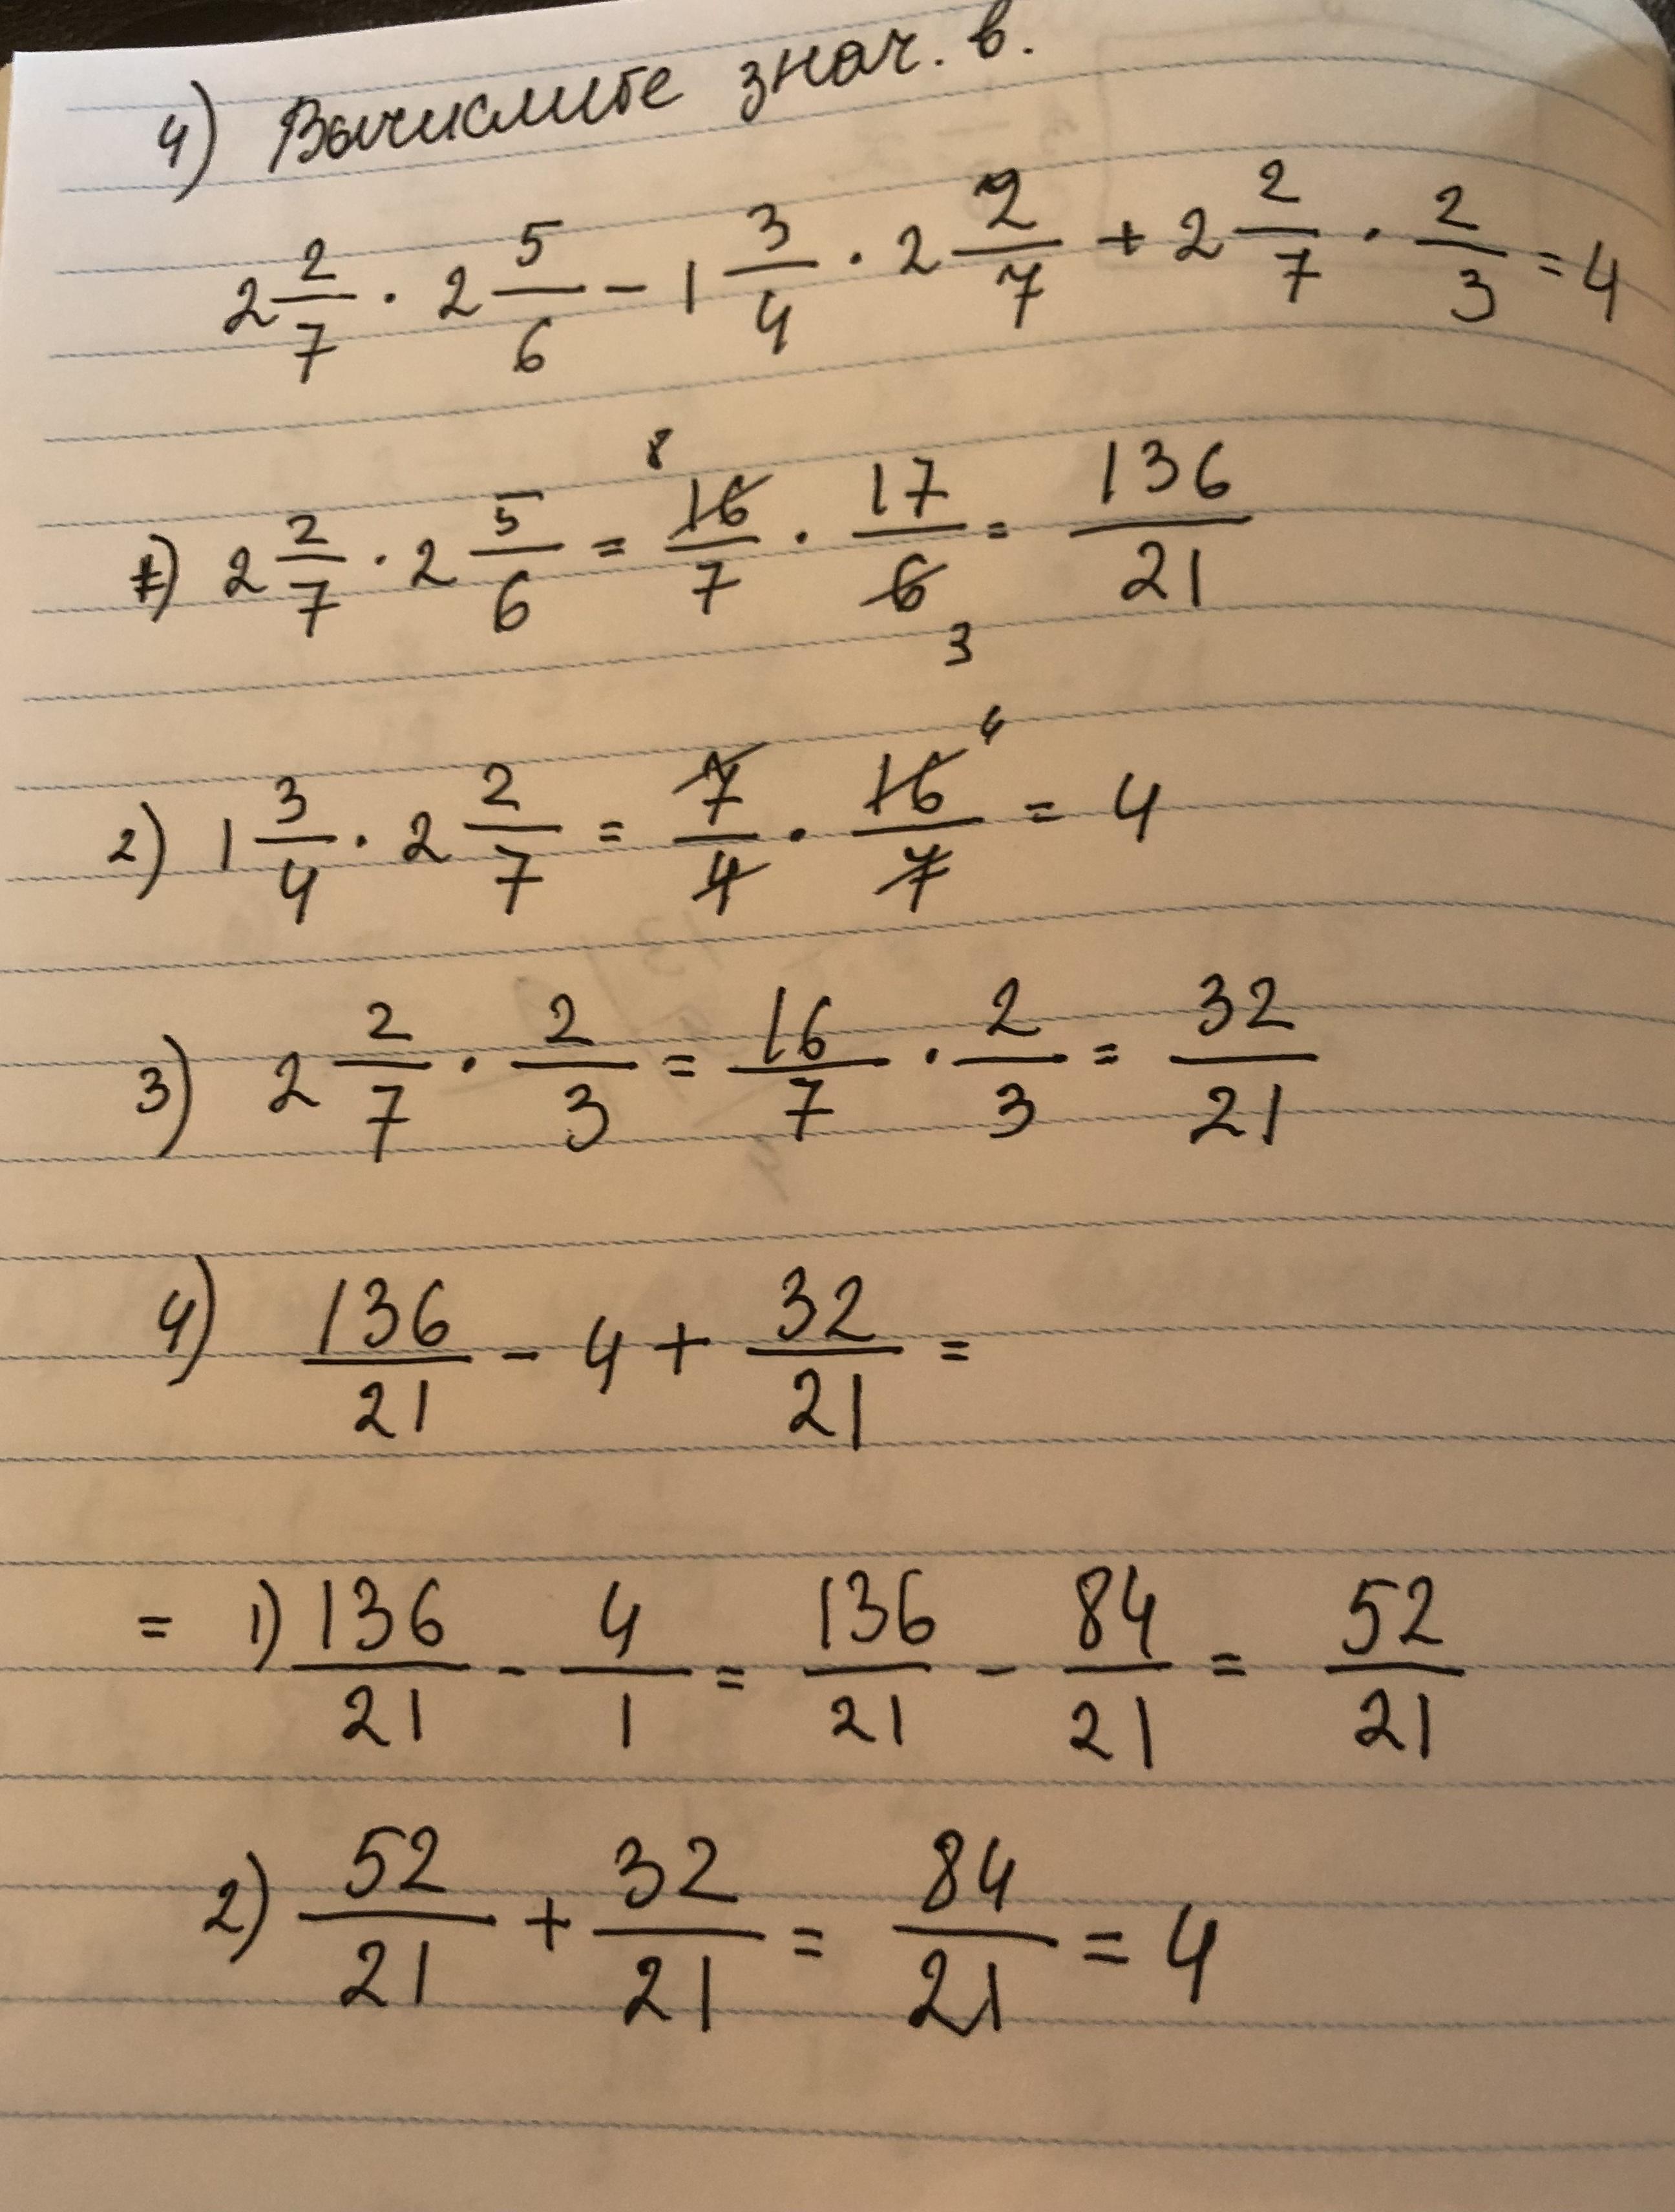 4) Вычислите знач. в.
2 2/7 · 2 5/6 - 1 3/4 · 2 2/7 + 2 2/7 · 2/3 = 4
1) 2 2/7 · 2 5/6 = 16/7 · 17/6 = 136/21
8
3
2) 1 3/4 · 2 2/7 = 7/4 · 16/7 = 4
4
3) 2 2/7 · 2/3 = 16/7 · 2/3 = 32/21
4) 136/21 - 4 + 32/21 =
= 1) 136/21 - 4/1 = 136/21 - 84/21 = 52/21
2) 52/21 + 32/21 = 84/21 = 4